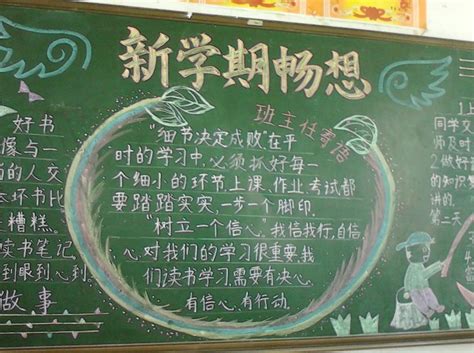 新学期畅想
班主任寄语
"细节决定成败"在平
时的学习中,必须抓好每一
个细小的环节,上课、作业、考试都
要踏踏实实,一步一个脚印.
"树立一个信心"我信我行,自信
心对我们的学习很重要.我
们读书学习,需要有决心,
有信心,有行动.
好书
像与一
的人交
本坏书比
糟糕.
读书笔记
到眼到心到
做事
同学
师及时
2.做好
的知识
讲的
第二天